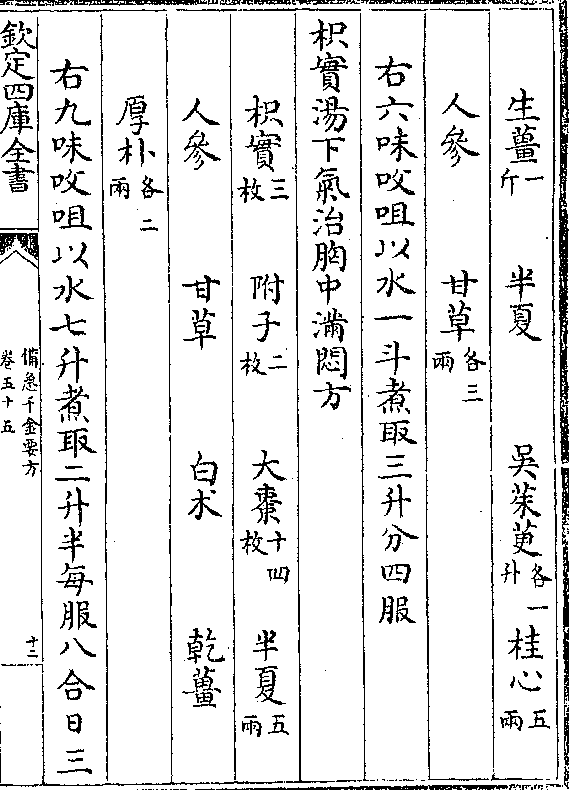 生薑一斤 半夏 吳茱萸各一升 桂心五兩
人參 甘草各三兩
右六味㕮咀以水一斗煮取三升分四服
枳實湯下氣治胸中滿悶方
枳實三枚 附子二枚 大棗十四枚 半夏五兩
人參 甘草 白朮 乾薑
厚朴各二兩
右九味㕮咀以水七升煮取二升半每服八合日三
欽定四庫全書
備急千金要方
卷五十五
十二